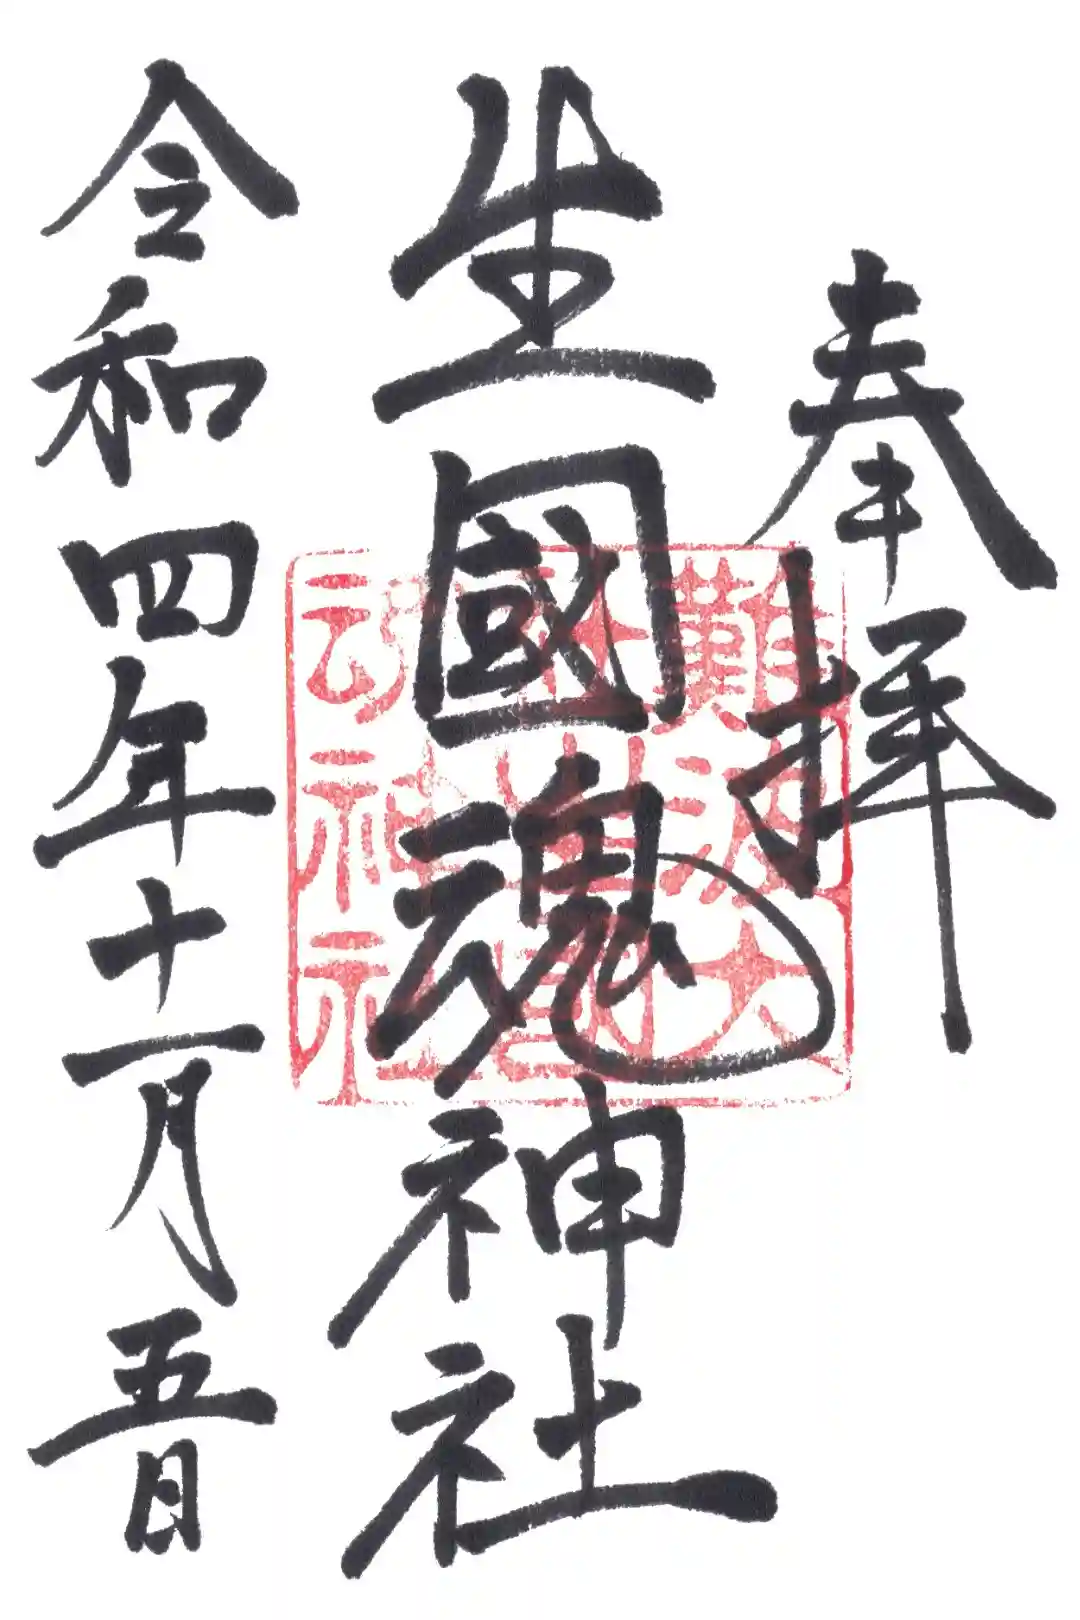 奉拝
生國魂神社
令和四年十一月五日
難波大
社生國
魂神社